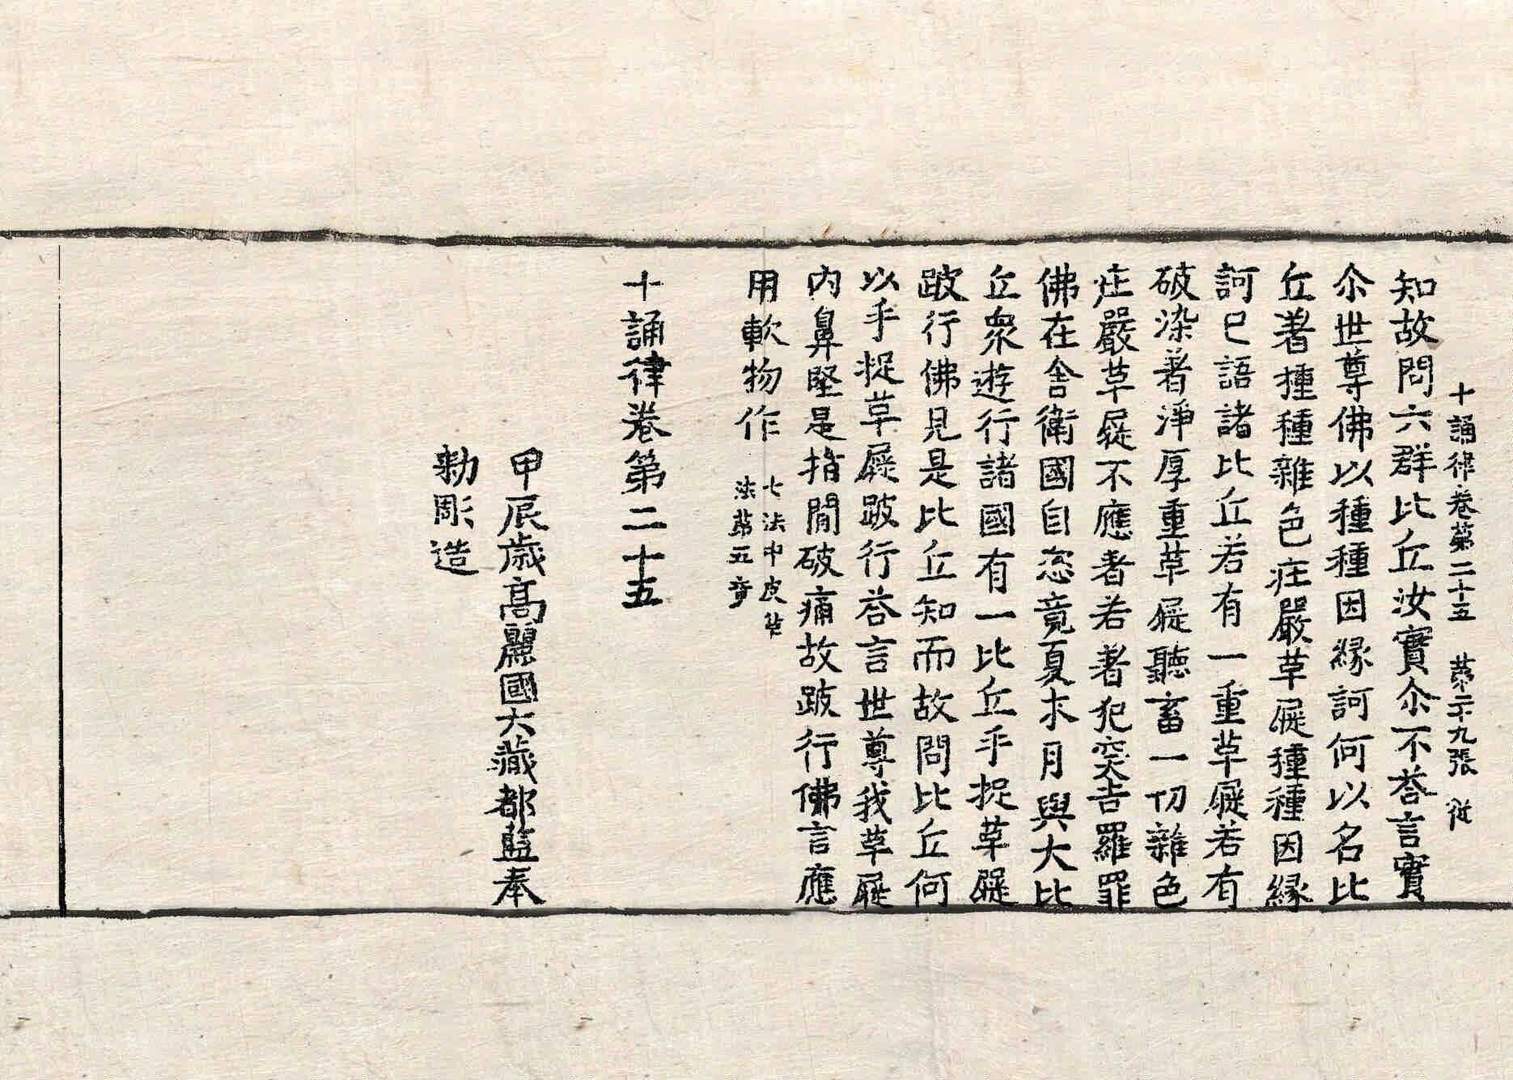 十誦律卷第二十五 第二十九張 從
知故問六群比丘汝實尒不荅言實
尒世尊佛以種種因緣訶何以名比
丘著種種雜色庄嚴草屣種種因緣
訶已語諸比丘若有一重草屣若有
破染著淨厚重草屣聽畜一切雜色
庄嚴草屣不應著若著犯突吉羅罪
佛在舍衛國自恣竟夏末月與大比
丘衆遊行諸國有一比丘手捉草屣
跛行佛見是比丘知而故問比丘何
以手捉草屣跛行荅言世尊我草屣
內鼻堅是指閒破痛故跛行佛言應
用軟物作 七法中皮革
法第五竟
十誦律卷第二十五
甲辰歲高麗國大藏都監奉
勅彫造